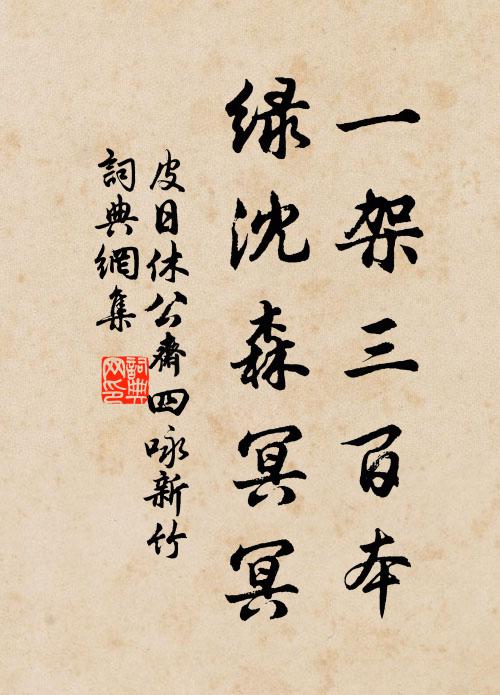 一架三百本
緑沈森冥冥
皮日休公齋四咏新竹
詞典網集
詞典
网印